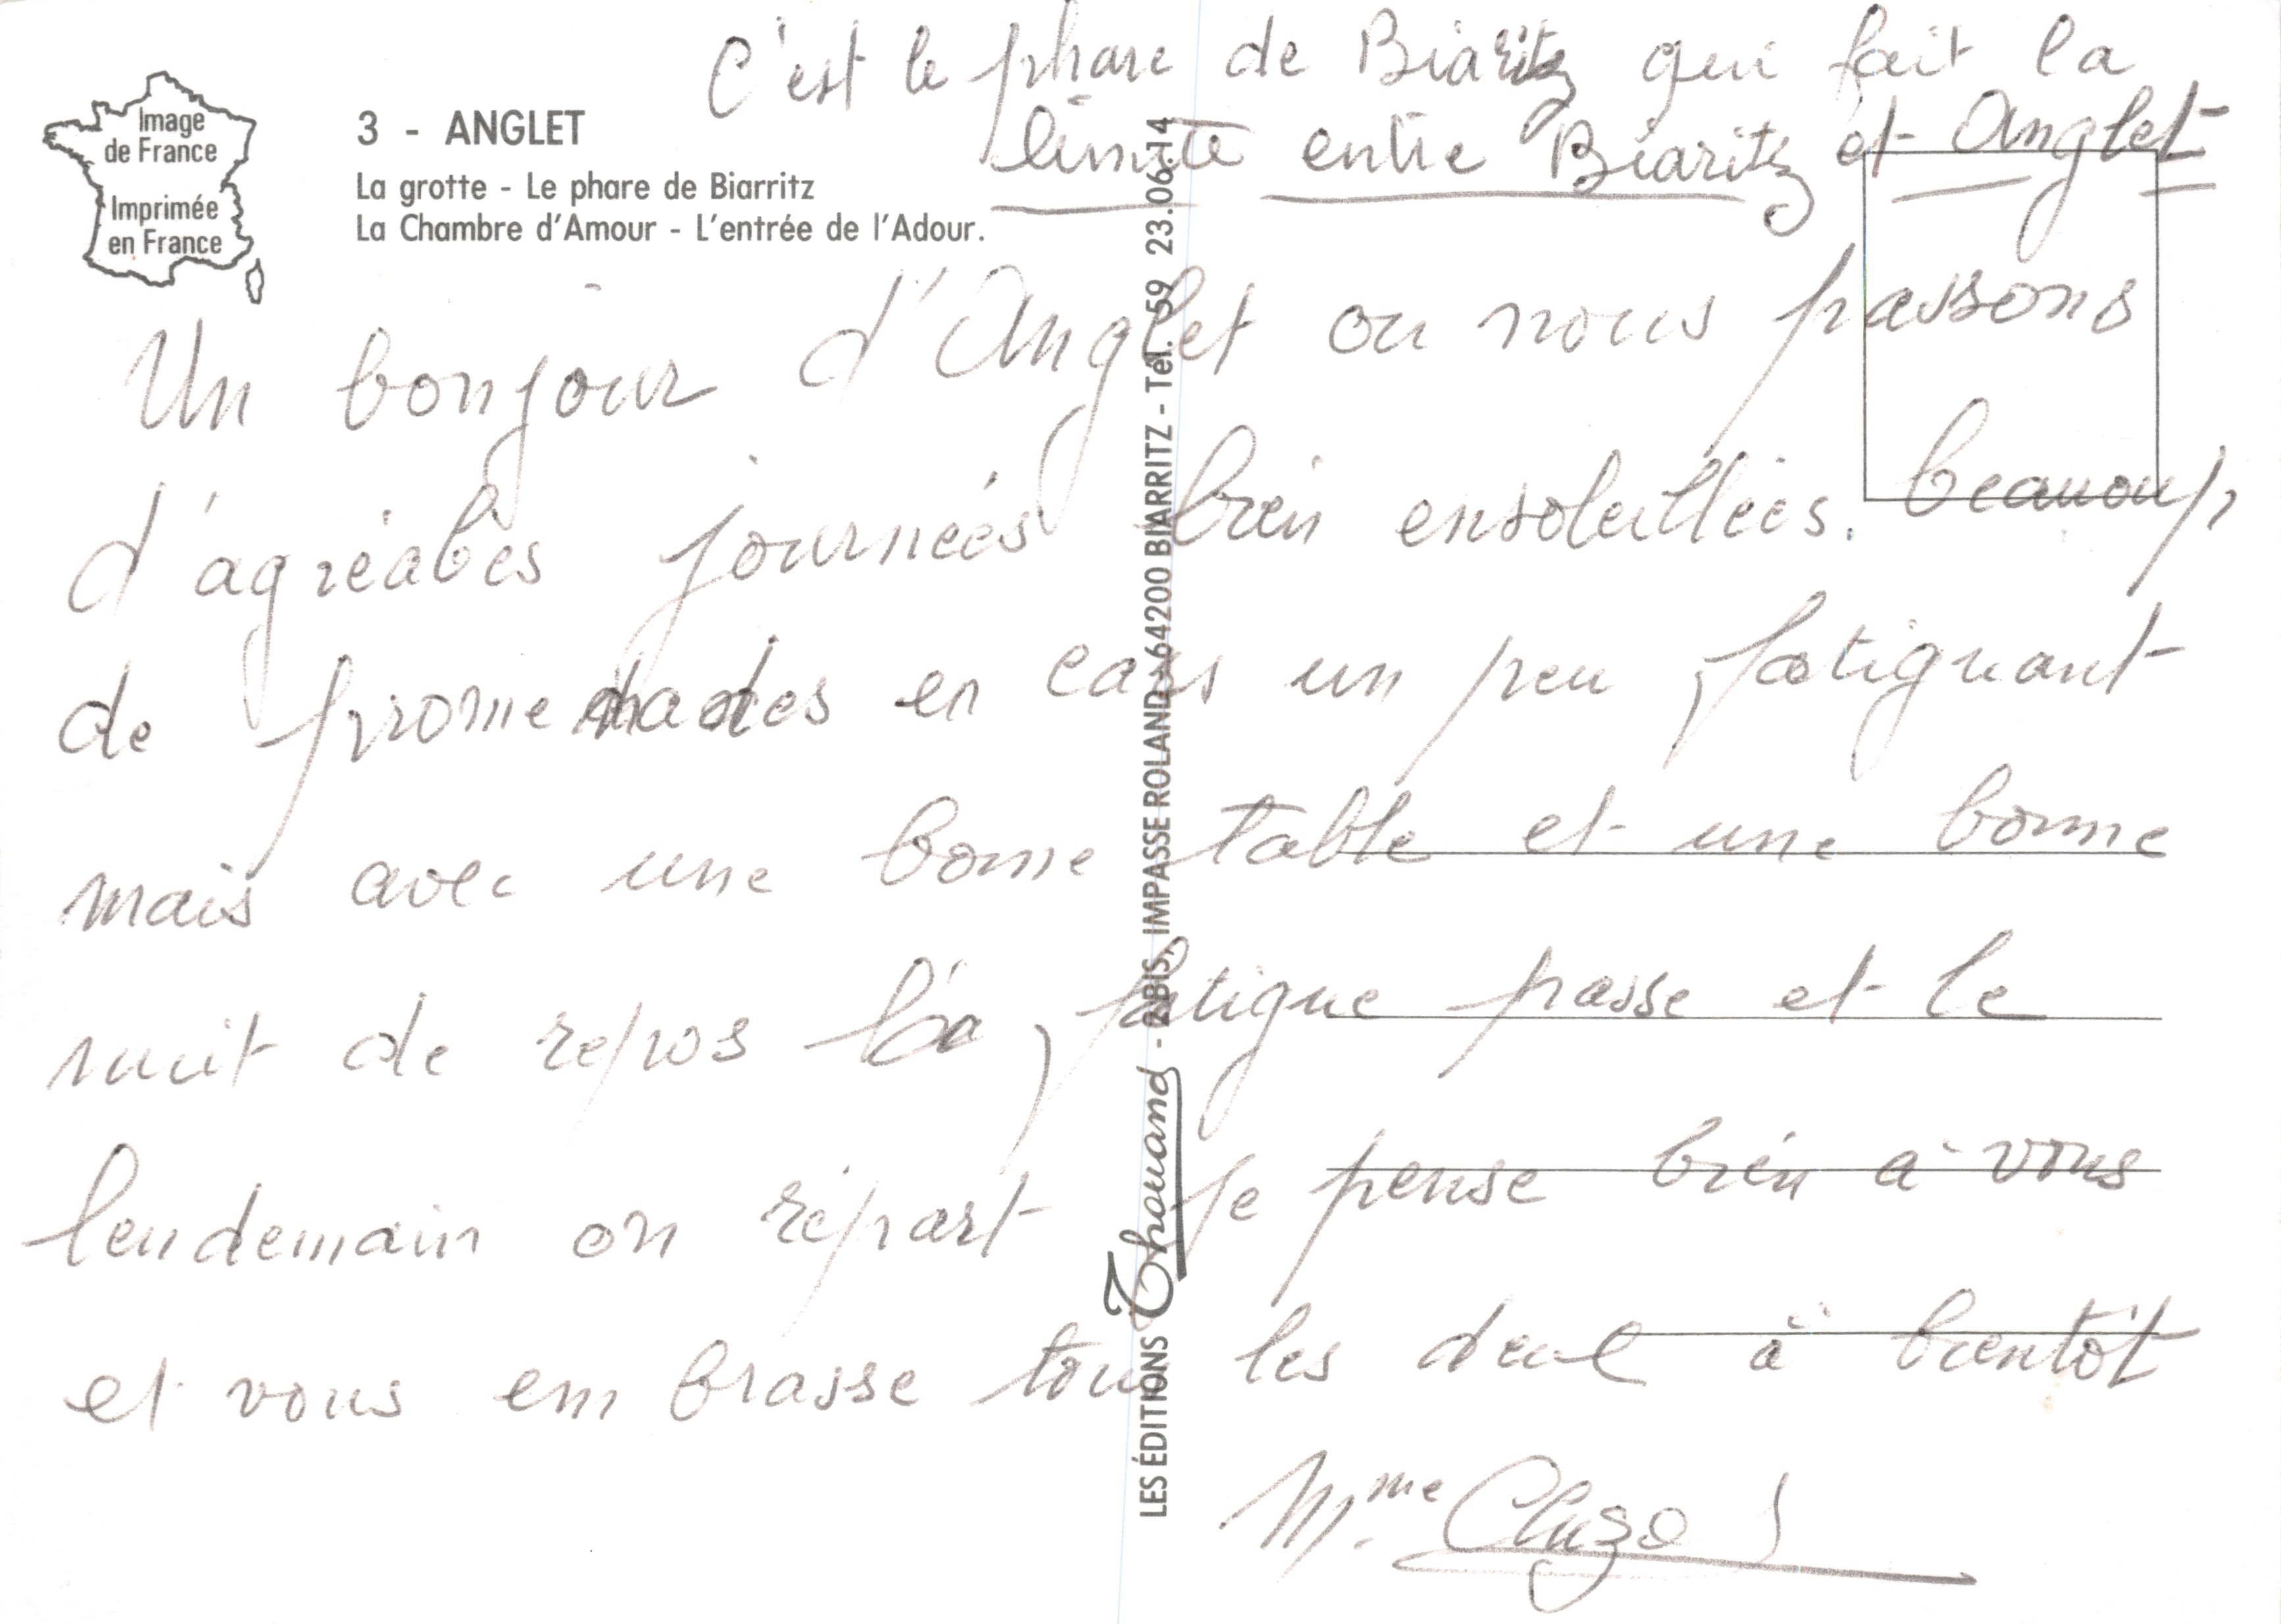 C'est le phare de Biaritz qui fait la
limite entre Biaritz et Anglet
Image
de France
Imprimée
en France
3 - ANGLET
La grotte - Le phare de Biarritz
La Chambre d'Amour - L'entrée de l'Adour.
Un bonjour d'Anglet ou nous passons
d'agréabes journées bien ensoleillées. beaucoup
de promenades en cars un peu fatiguant
mais avec une bonne table et une bonne
nuit de repos la fatigue passe et le
lendemain on répart je pense bien à vous
et vous embrasse tous les deux à bientôt
Mme
LES ÉDITIONS Thouand - 2 BIS, IMPASSE ROLAND - 64200 BIARRITZ - Tél. 59 23.06.14